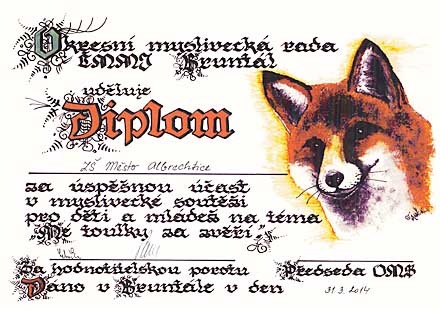 Okresní myslivecká rada
ČMMJ Bruntál
uděluje
Diplom
ZŠ Město Albrechtice
za úspěšnou účast
v myslivecké soutěži
pro děti a mládež na téma
"Mé toulky za zvěří".
Za hodnotitelskou porotu Předseda OMS
Dáno v Bruntále v den 31.3.2014